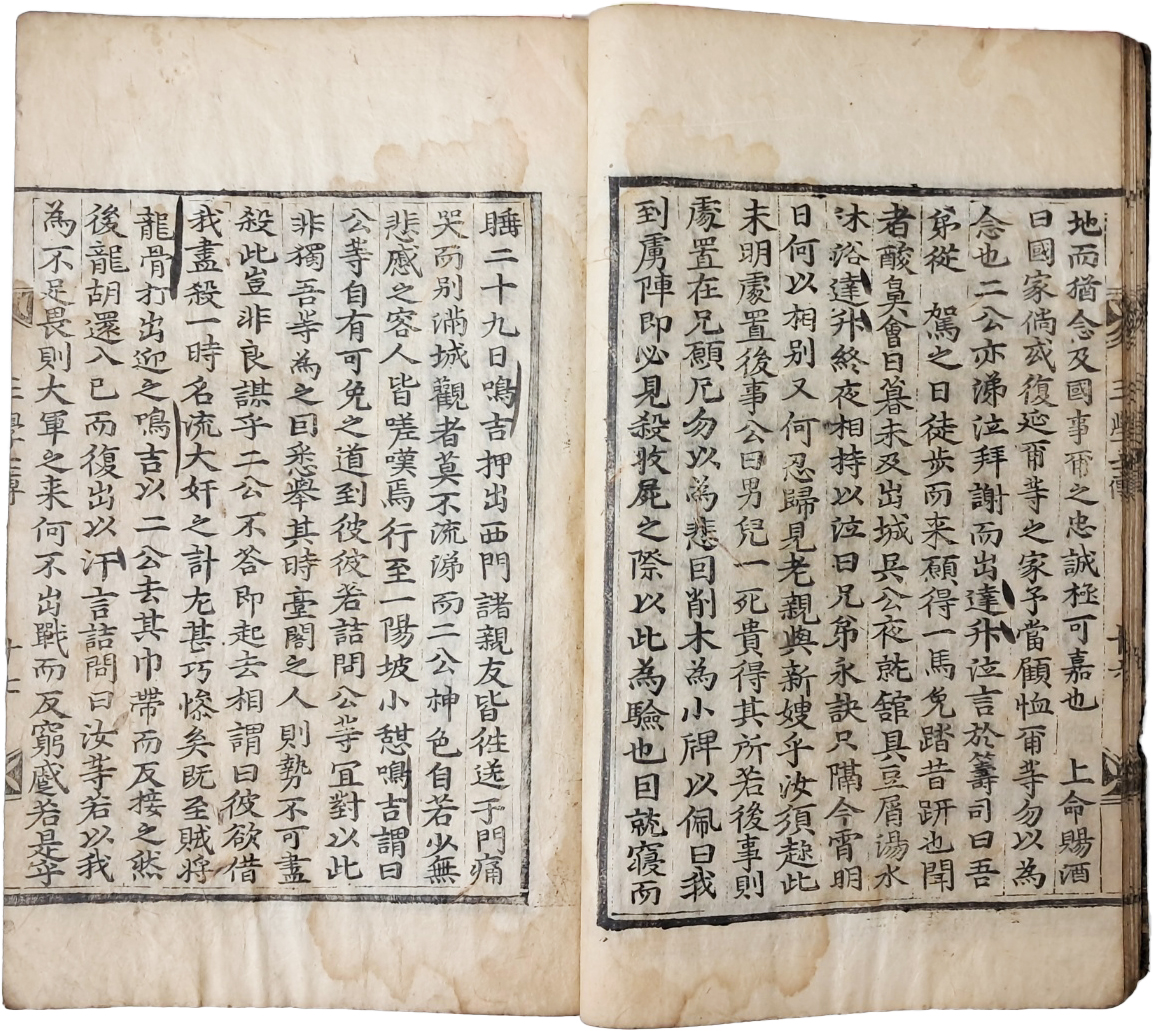 地而猶念及國事爾之忠誠極可嘉也　上命賜酒
曰國家倘或復延爾等之家予當顧恤爾等勿以為
念也二公亦涕泣拜謝而出達升泣言於籌司曰吾
弟從　駕之日徒步而来願得一馬免踏昔趼也聞
者酸鼻會日暮未及出城兵公夜就館具豆屑湯水
沐浴達升終夜相持以泣曰兄弟永訣只隔今宵明
日何以相别又何忍歸見老親與新嫂乎汝須趂此
未明處置後事公曰男兒一死貴得其所若後事則
處置在兄願兄勿以為悲因削木為小牌以佩曰我
到虜陣即必見殺收屍之際以此為驗也因就寢而
三學士傳
十六
睡二十九日鳴吉押出西門諸親友皆徃送于門痛
哭而别滿城觀者莫不流涕而二公神色自若少無
悲慼之容人皆嗟嘆焉行至一陽坡小憩鳴吉謂曰
公等自有可免之道到彼彼若詰問公等冝對以此
非獨吾等為之因悉舉其時臺閣之人則勢不可盡
殺此豈非良謀乎二公不答即起去相謂曰彼欲借
我盡殺一時名流大奸之計尤甚巧慘矣既至賊将
龍骨打出迎之鳴吉以二公去其巾帶而反接之然
後龍胡還入已而復出以汗言詰問曰汝等若以我
為不足畏則大軍之来何不出戰而反窮蹙若是乎
三學士傳
十七